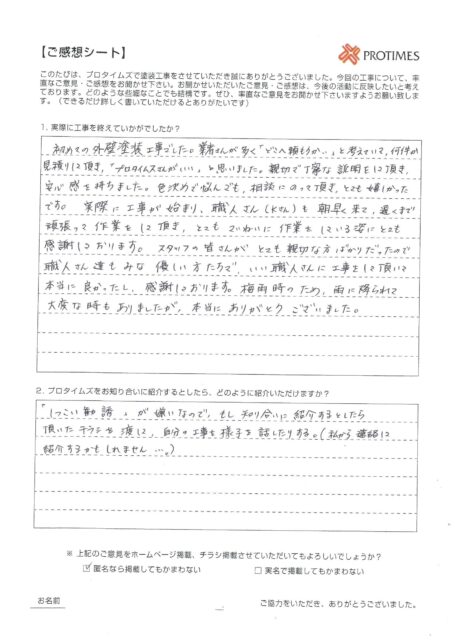 【ご感想シート】
PROTIMES
このたびは、プロタイムズで塗装工事をさせていただき誠にありがとうございました。今回の工事について、率
直なご意見・ご感想をお聞かせ下さい。お聞かせいただいたご意見・ご感想は、今後の活動に反映したいと考え
ております。どのような些細なことでも結構です。ぜひ、率直なご意見をお聞かせ下さいますようお願い致しま
す。(できるだけ詳しく書いていただけるとありがたいです)
1. 実際に工事を終えていかがでしたか?
初めての外壁塗装工事でした。業者さんが多く「どこへ頼もうか…」と考えていて、何件か
見積りして頂き、「プロタイムズさんがいい」と思いました。親切で丁寧な説明をして頂き、
安心感を持ちました。色決めで悩んでも、相談にのって頂き、とても嬉しかった
です。実際に工事が始まり、職人さん(Kさん)も朝早く来て、遅くまで
頑張って作業をして頂き、とてもていねいに作業をしている姿にとても
感謝しております。スタッフの皆さんがとても親切な方ばかりだったので
職人さん達もみな優しい方たちで、いい職人さんに工事をして頂いて
本当に良かったし、感謝しております。梅雨時のため、雨に降られて
大変な時もありましたが、本当にありがとうございました。
2. プロタイムズをお知り合いに紹介するとしたら、どのように紹介いただけますか?
「しつこい勧誘」が嫌いなので、もし知り合いに紹介するとしたら
頂いたチラシを渡し、自分の工事の様子を話したりする。(私から連絡し
紹介するかもしれません…。)
※ 上記のご意見をホームページ掲載、チラシ掲載させていただいてもよろしいでしょうか?
☑ 匿名なら掲載してもかまわない □ 実名で掲載してもかまわない
お名前
ご協力をいただき、ありがとうございました。